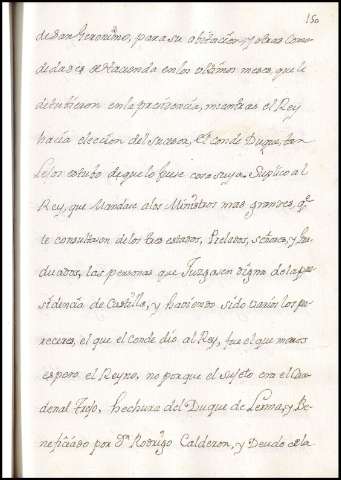 150
de San Geronimo, para su abitacion, y otras Como
didades de Hacienda en los ultimos meses, que le
detubieron en la precidencia, mientras el Rey
hacia eleccion del subcesor, el Conde Duque, tan
lejos estubo de que lo fuese cosa suya. Suplico al
Rey, que Mandase a los Ministros mas grandes, qe
le consultasen de los tres estados, Prelados, señores, y Gra
duados, las personas que Juzgasen digna de la pre
sidencia de Castilla, y haviendo sido varios los pa
receres, el que el Conde dio al Rey, fue el que menos
espero el Reyno, no porque el sujeto era el Car
denal Trejo, hechura del Duque de Lerma, y Be
neficiado por Dn Rodrigo Calderon, y Deudo de la